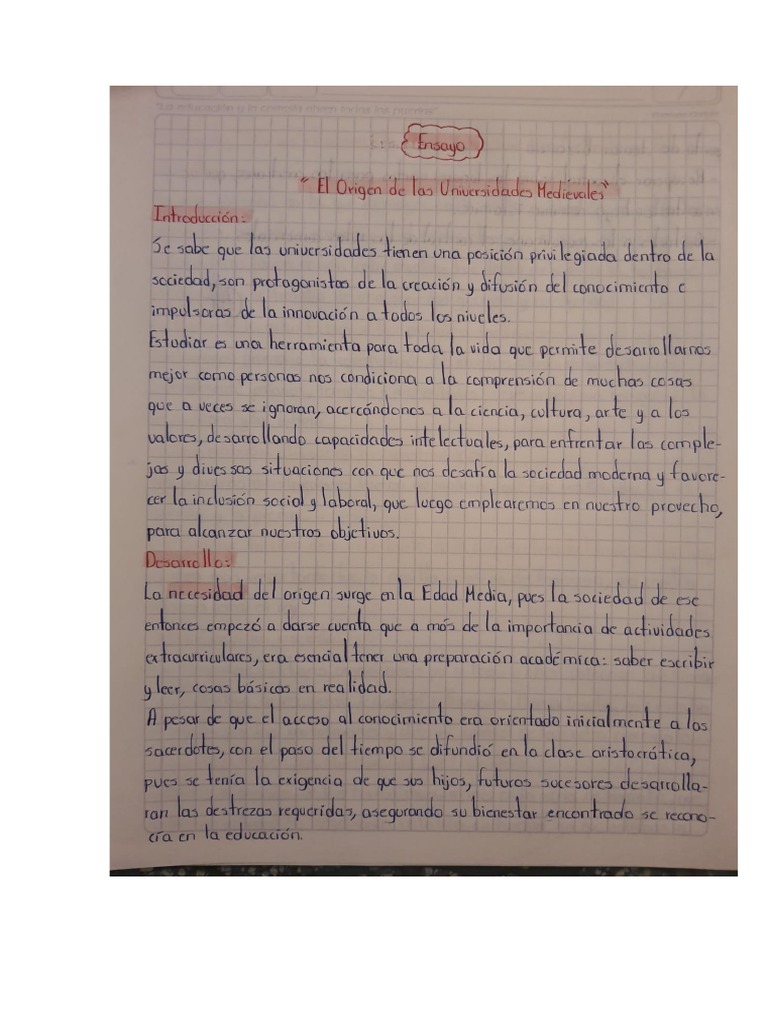 "La educación y la
Ensayo
"El Origen de las Universidades Medievales"
Introducción:
Se sabe que las universidades tienen una posición privilegiada dentro de la
sociedad, son protagonistas de la creación y difusión del conocimiento e
impulsoras de la innovación a todos los niveles.
Estudiar es una herramienta para toda la vida que permite desarrollarnos
mejor como personas nos condiciona a la comprensión de muchas cosas
que a veces se ignoran, acercándonos a la ciencia, cultura, arte y a los
valores, desarrollando capacidades intelectuales, para enfrentar las comple-
jas y diversas situaciones con que nos desafía la sociedad moderna y favore-
cer la inclusión social y laboral, que luego emplearemos en nuestro provecho,
para alcanzar nuestros objetivos.
Desarrollo:
La necesidad del origen surge en la Edad Media, pues la sociedad de ese
entonces empezó a darse cuenta que a más de la importancia de actividades
extracurriculares, era esencial tener una preparación académica: saber escribir
y leer, cosas básicas en realidad.
A pesar de que el acceso al conocimiento era orientado inicialmente a los
sacerdotes, con el paso del tiempo se difundió en la clase aristocrática,
pues se tenía la exigencia de que sus hijos, futuros sucesores desarrolla-
ran las destrezas requeridas, asegurando su bienestar encontrado se recono-
cía en la educación.